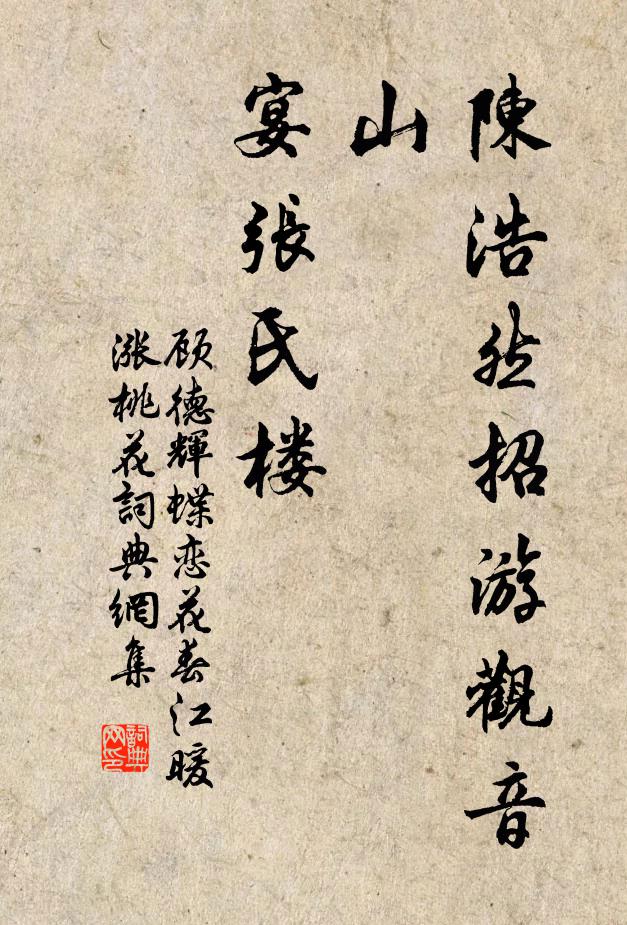 陳浩然招游觀音
山
宴張氏楼
顾德輝蝶恋花春江暖
涨桃花詞典網集
詞典
网印